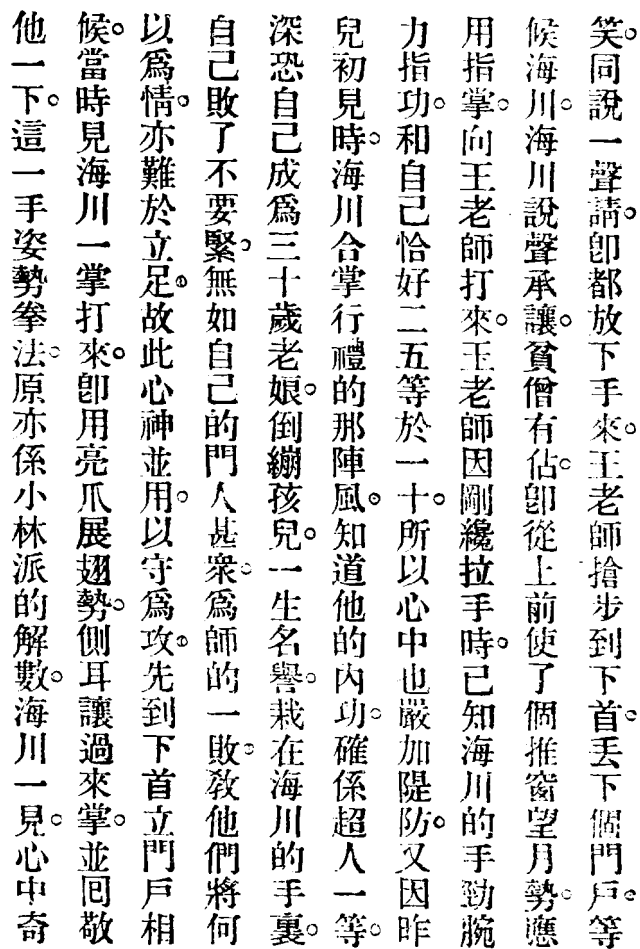 笑。同說一聲請。卽都放下手來。王老師搶步到下首。丢下個門戶。等
候海川。海川說聲承讓。貧僧有佔。卽從上前使了個推窗望月勢。應
用指掌。向王老師打來。王老師因剛纔拉手時。已知海川的手勁腕
力指功。和自己恰好二五等於一十。所以心中也嚴加隄防。又因昨
兒初見時。海川合掌行禮的那陣風。知道他的內功。確係超人一等。
深恐自己成爲三十歲老娘。倒繃孩兒。一生名譽。栽在海川的手裏。
自己敗了不要緊。無如自己的門人甚衆。爲師的一敗。敎他們將何
以爲情。亦難於立足。故此心神並用。以守爲攻。先到下首立門戶相
候。當時見海川一掌打來。卽用亮爪展翅勢。側耳讓過來掌。並囘敬
他一下。這一手姿勢拳法。原亦係小林派的解數。海川一見。心中奇